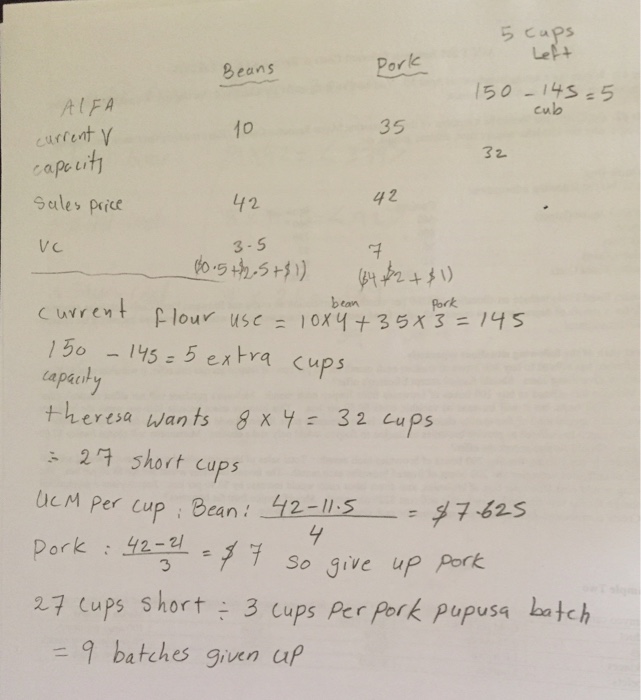 5 cups
Left
Beans Pork
150 - 145 = 5
cub
AlFA
current V 10 35
capacity 32
Sales price 42 42
VC 3.5 7
($0.5+$2.5+$1) ($4+$2+$1)
current flour use = 10x4 + 35x3 = 145
bean Pork
150 - 145 = 5 extra cups
capacity
theresa wants 8 x 4 = 32 cups
= 27 short cups
UCM per cup : Bean : 42-11.5 / 4 = $7.625
Pork : 42-21 / 3 = $7 so give up pork
27 cups short ÷ 3 cups per pork pupusa batch
= 9 batches given up